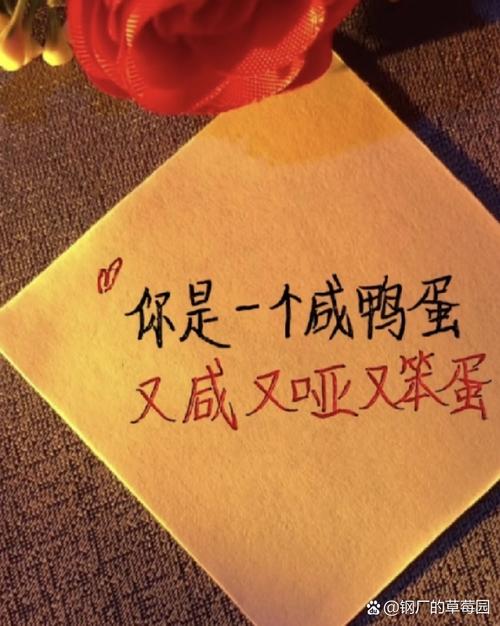 你是一个咸鸭蛋
又咸又哑又笨蛋
@钢厂的草莓园